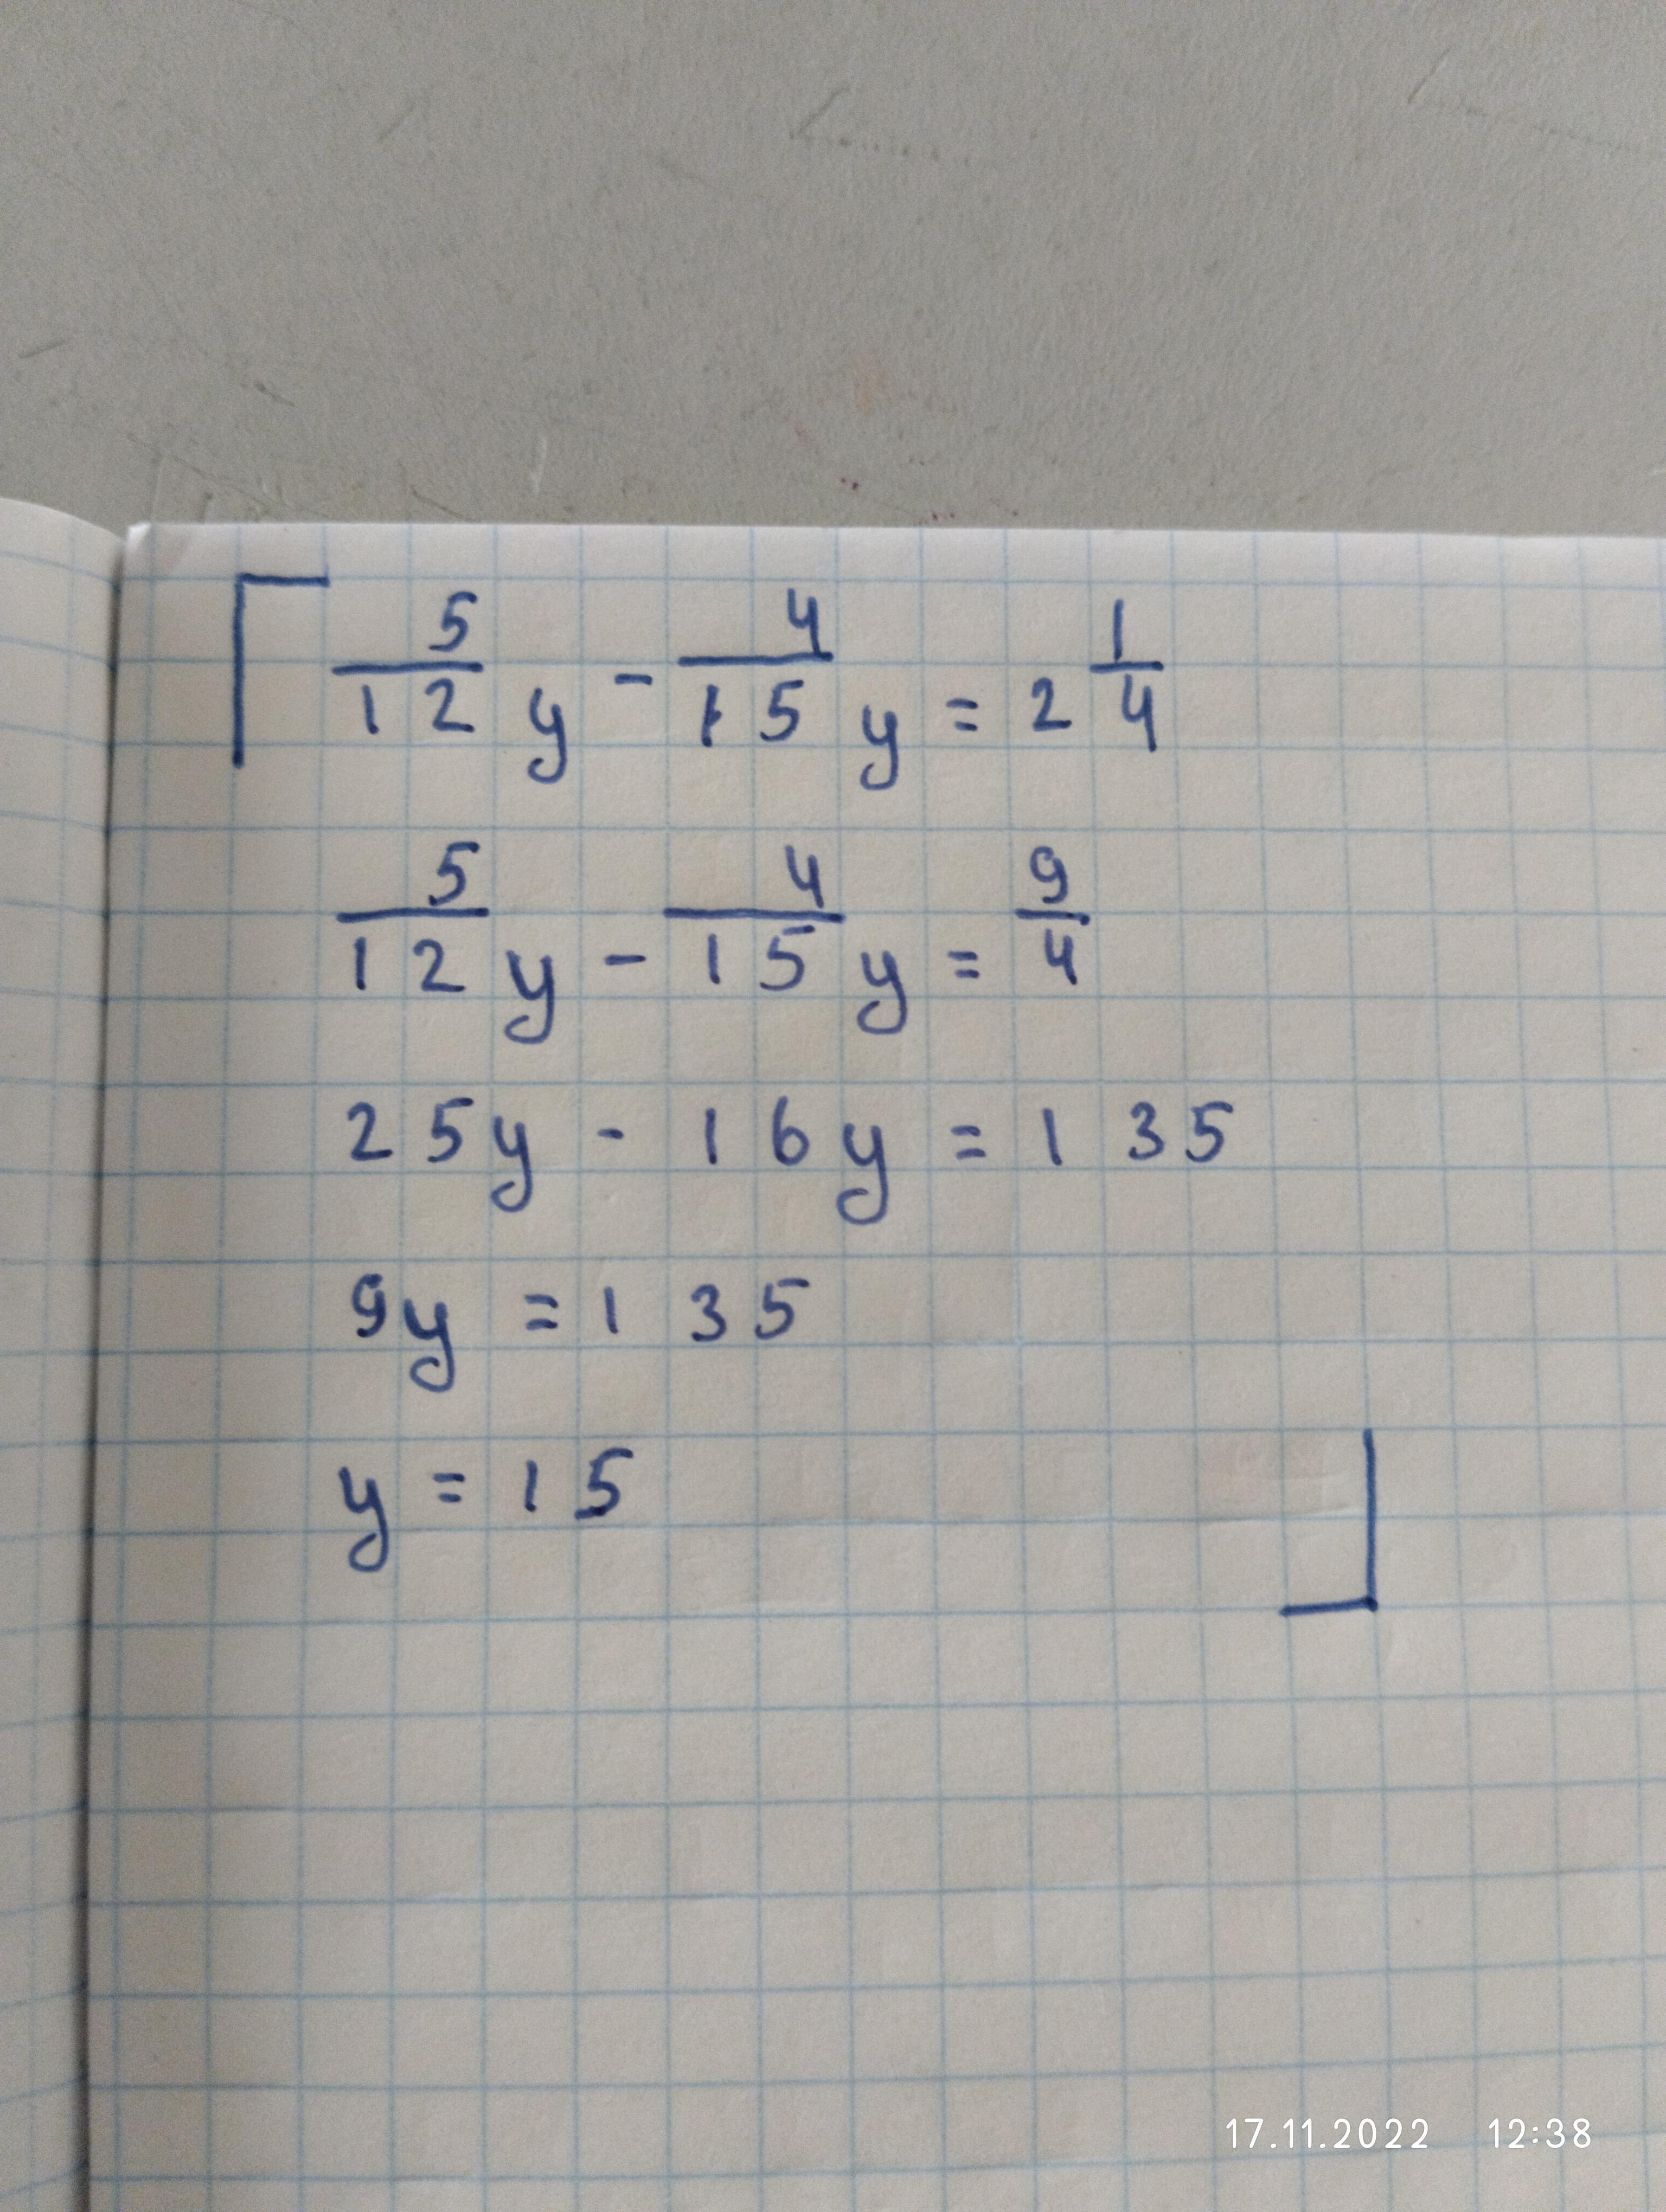 5/12 y - 4/15 y = 2 1/4
5/12 y - 4/15 y = 9/4
25y - 16y = 135
9y = 135
y = 15
17.11.2022 12:38